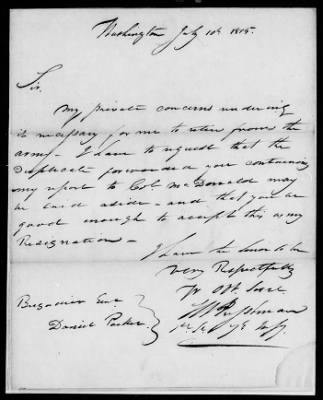 Washington July 10th 1815.
Sir.
My private concerns rendering
it necessary for me to retire from the
army - I have to request that the
Duplicate forwarded you containing
my report to Col. McDonald may
be laid aside - and that you be
good enough to accept this as my
Resignation -
I have the honor to be
very Respectfully
Yr Obt. Servt
Brigadier Genl
Daniel Parker.